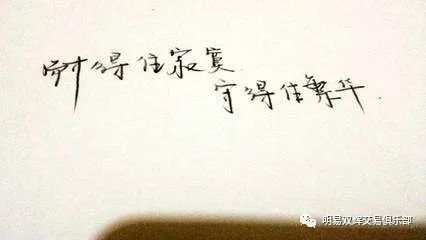 耐得住寂寞
守得住繁华
明易双交易俱乐部